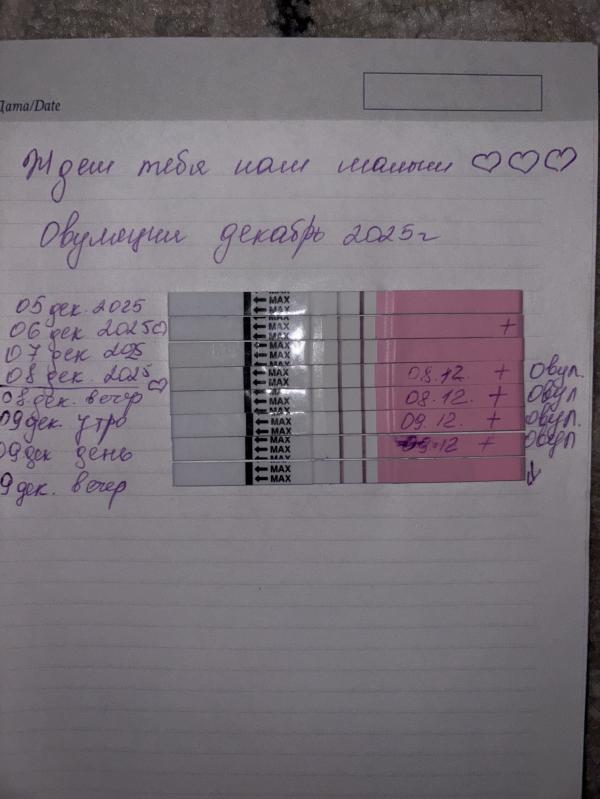 Дата/Date
Ждем тебя наш малыш ♡♡♡
Овуляции декабрь 2025г
05 дек. 2025
06 дек 2025 ♡
07 дек 2025
08 дек. 2025
08 дек. вечер ♡
09 дек. утро
09 дек день
9 дек. вечер
← MAX
← MAX +
← MAX
← MAX 08.12. + Овул.
← MAX 08.12. + Овул
← MAX 09.12. + Овул.
← MAX 09.12 + Овул
← MAX ↓